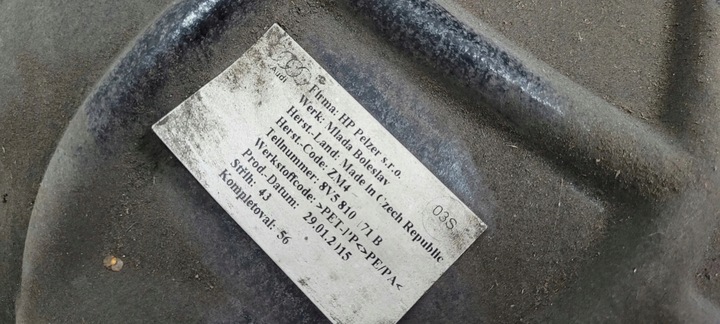 Audi
Firma: HP Pelzer s.r.o.
Werk: Mlada Boleslav
Herst.-Land: Made in Czech Republic
Herst.-Code: ZM4
Teilnummer: 8V5 810 71 B
Werkstoffcode: >PET-PP<>PE/PA<
Prod.-Datum: 29.01.2 15
Střih: 43
Kompletoval: 56
03S